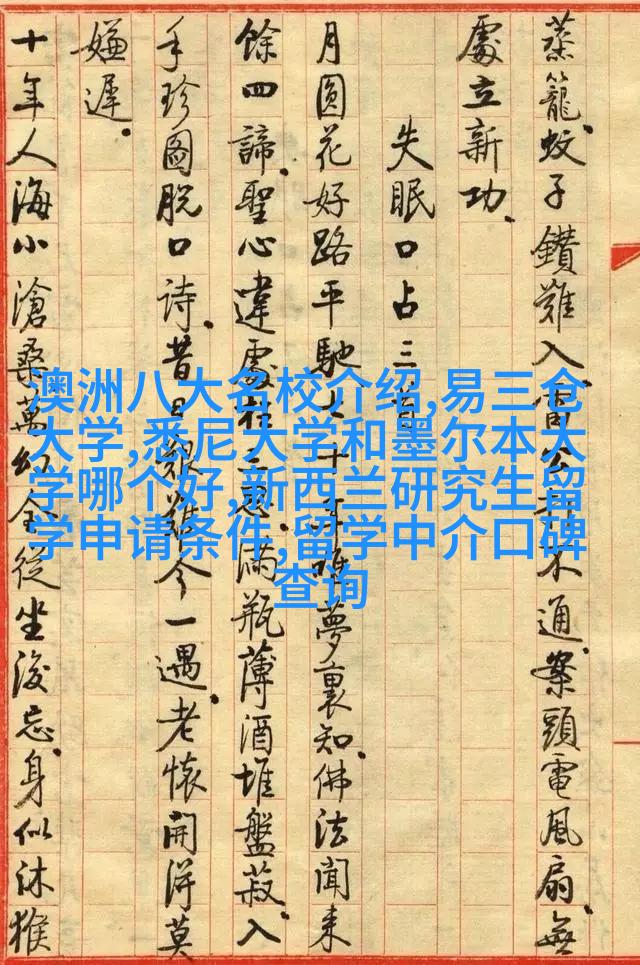 蒸籠。蚊子鑽難入。雷公打不通。案頭電風扇。無
處立新功。
失眠口占三首
月圓花好路平馳七十年唯夢裏知。佛法聞來
餘四諦。聖心違處在三思。滿瓶薄酒堆盤菽。入
手珍圖脫口詩。昔日艱難今一遇。老懷開得莫
嫌遲。
十年人海小滄桑萬幻全從坐後忘。身似沐猴
澳洲八大名校介绍,易三仓
大学,悉尼大学和墨尔本大
学哪个好,新西兰研究生留
学申请条件,留学中介口碑
查询